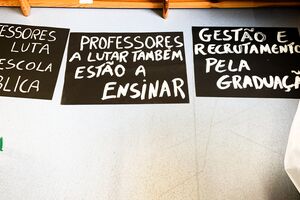 ESSORES
LUTA
ESCOLA
BLICA
PROFESSORES
A LUTAR TAMBÉM
ESTÃO A
ENSINAR
GESTÃO E
RECRUTAMENTO
PELA
GRADUAÇÃO